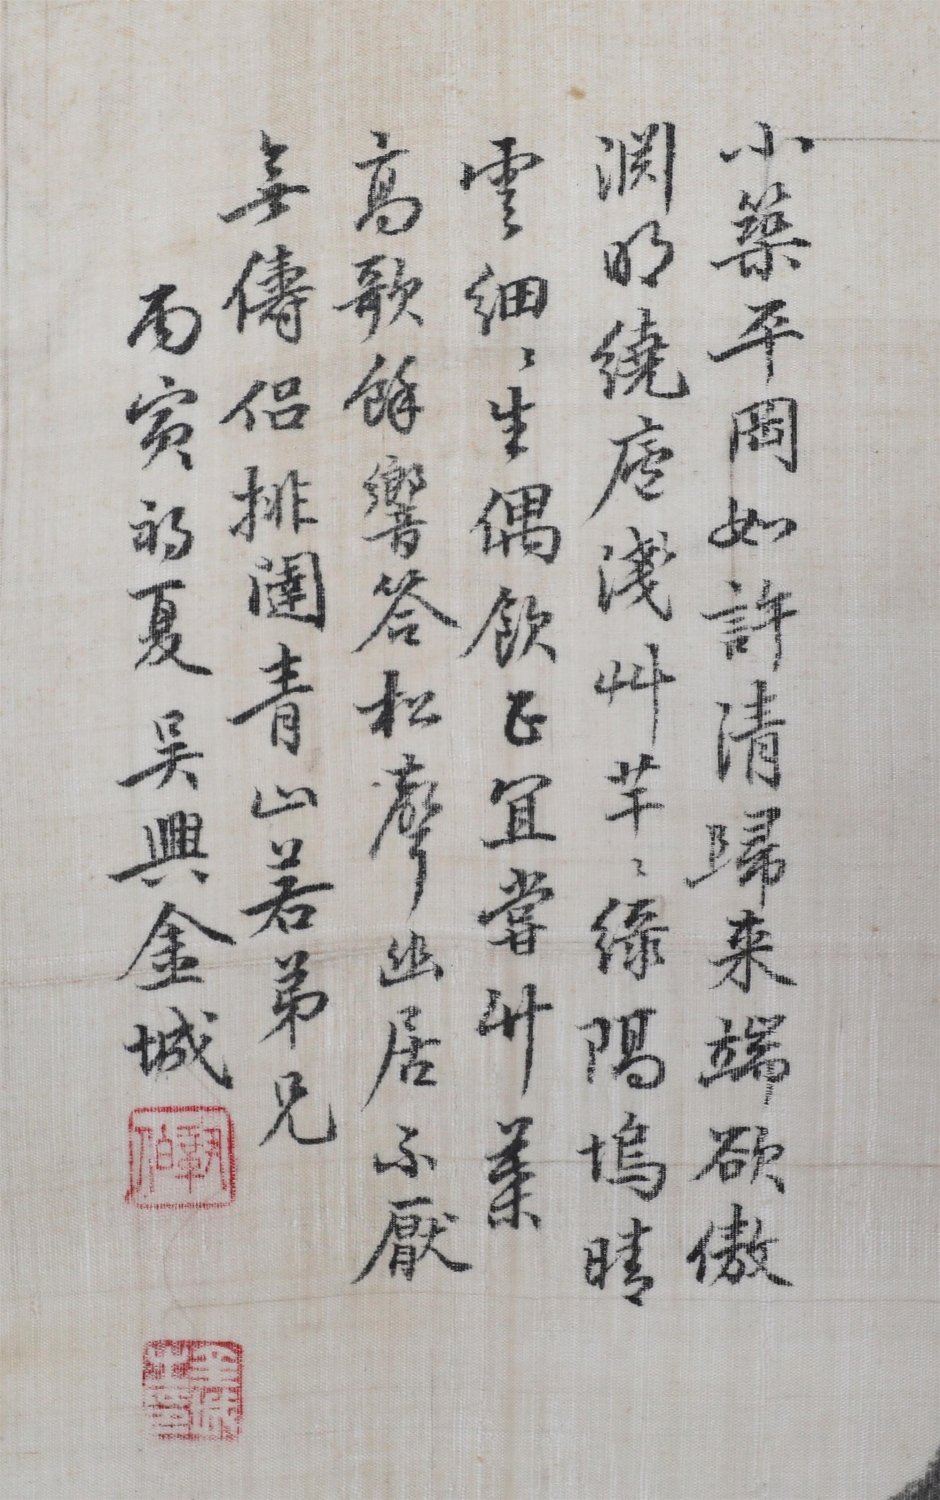 小築平岡如許清歸来端欲傲
淵明繞廬淺艸芊〻綠隔塢晴
雲細〻生偶飲正宜嘗竹葉
高歌餘響答松聲幽居不厭
無儔侶排闥青山若弟兄
丙寅初夏吳興金城
鞏伯
金城之章